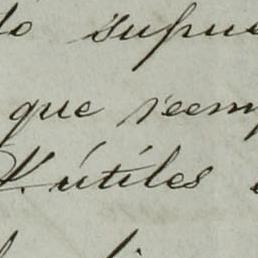 do supue
que reem
V. útiles